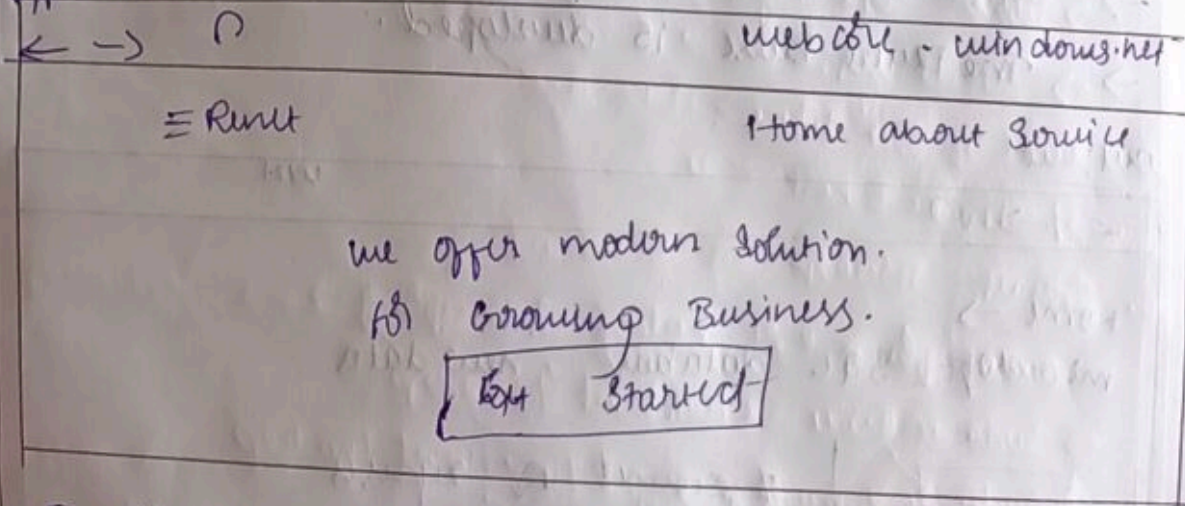 ← → webcore.windows.net
≡ Result Home about Service
we offer modern Solution.
for Growing Business.
Get Started